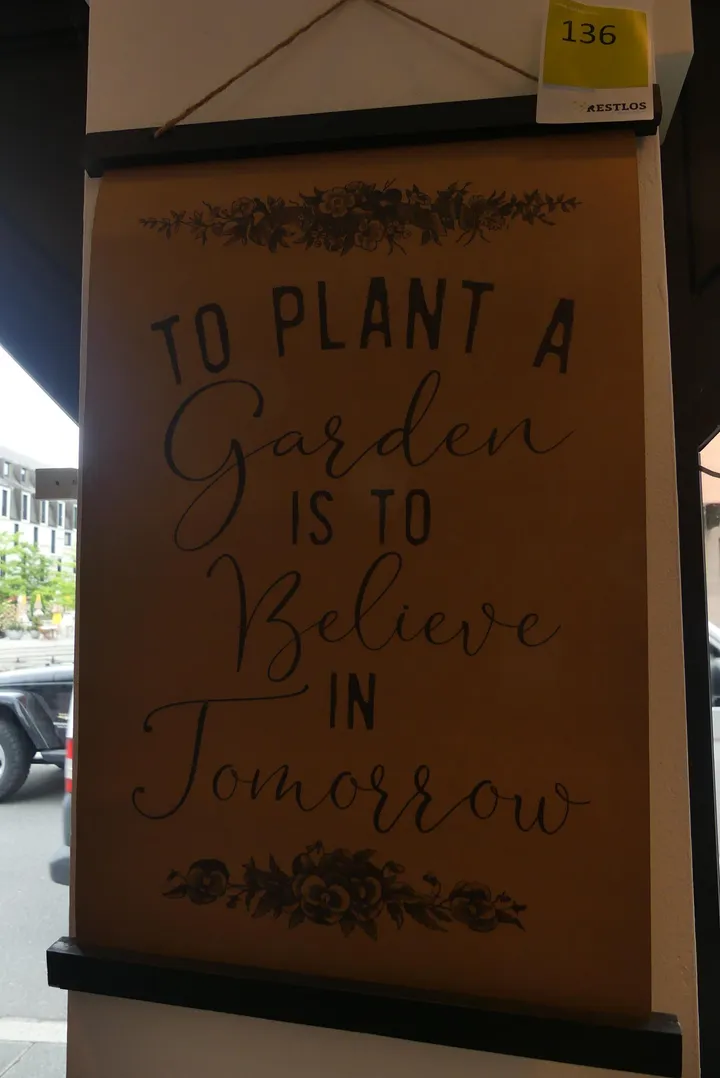 136
RESTLOS
TO PLANT A
Garden
IS TO
Believe
IN
Tomorrow